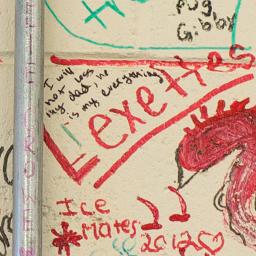 Pug
Gibby
I will
not loss
my dad he
is my everything
Lexettes
Ice
Mates
2012